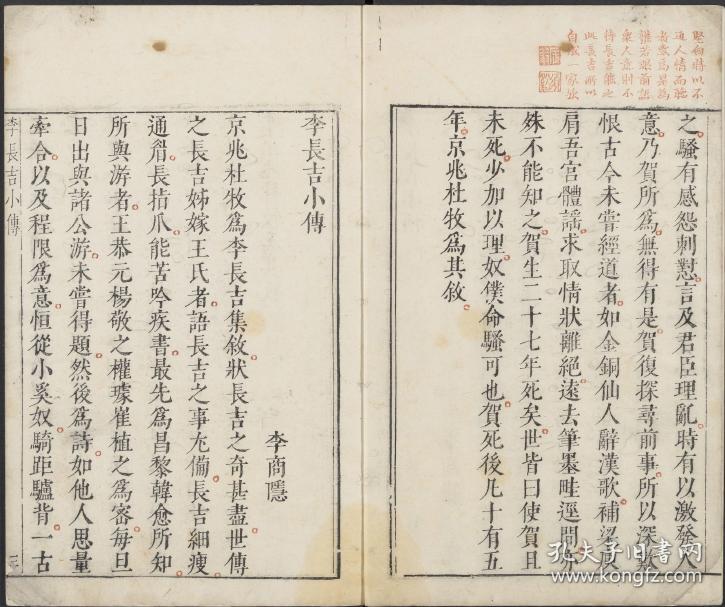 通人情而
衆人意
此長吉所以
自成一家歟
之騷有感怨刺懟言及君臣理亂時有以激發人
意乃賀所爲無得有是賀復探尋前事所以深歎
恨古今未嘗經道者如金銅仙人辭漢歌補梁庾
肩吾宮體謠求取情狀離絕遠去筆墨畦逕間亦
殊不能知之賀生二十七年死矣世皆曰使賀且
未死少加以理奴僕命騷可也賀死後凡十有五
年京兆杜牧爲其敘
李長吉小傳
李商隱
京兆杜牧爲李長吉集敘狀長吉之奇甚盡世傳
之長吉姊嫁王氏者語長吉之事尤備長吉細瘦
通眉長指爪能苦吟疾書最先爲昌黎韓愈所知
所與游者王恭元楊敬之權璩崔植之爲密每旦
日出與諸公游未嘗得題然後爲詩如他人思量
牽合以及程限爲意恒從小奚奴騎距驢背一古
李長吉小傳
三
孔夫子旧书网
www.kongfz.com